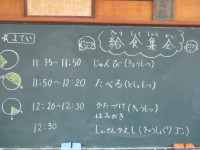 よてい
きゅうしょくしゅうかい
給食集会
11:35〜11:50 じゅんび(きょうしつ)
11:50〜12:20 たべる(としょしつ)
12:20〜12:30 かたづけ(きょうしつ)
はみがき
12:30